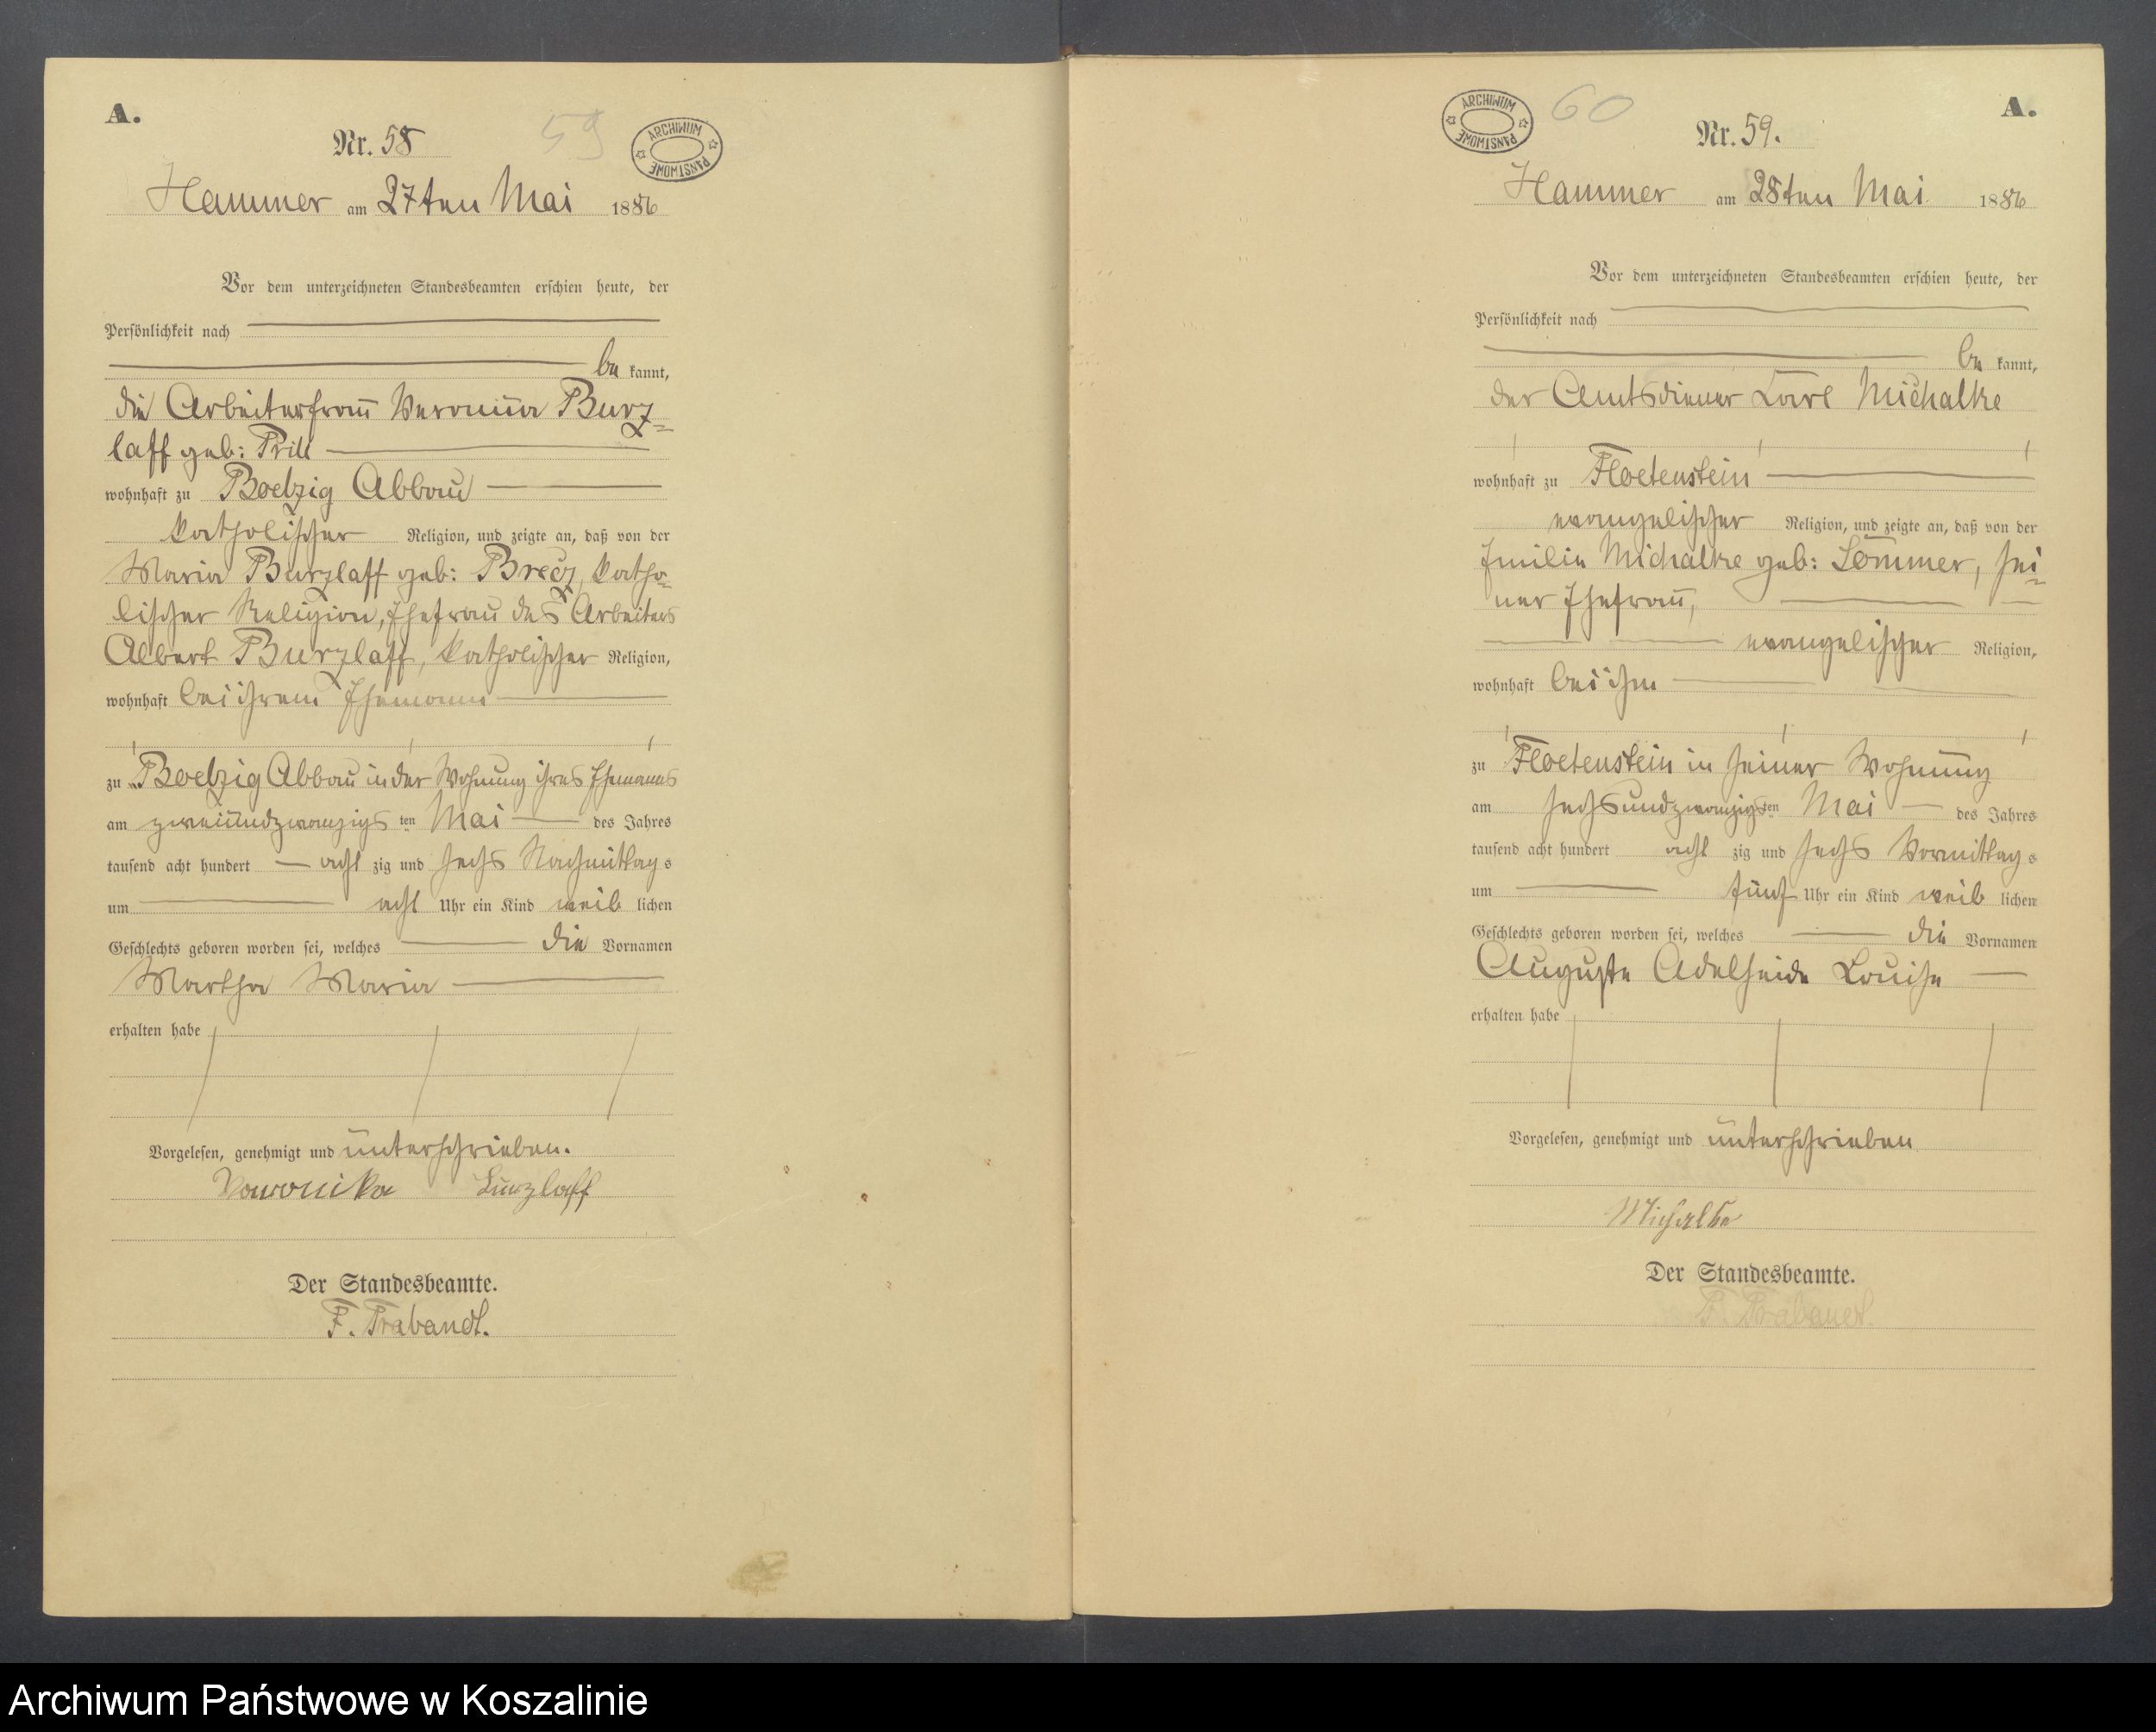 A.
Nr. 58
59
ARCHIWUM PAŃSTWOWE
Hammer am 27ten Mai 1886
Vor dem unterzeichneten Standesbeamten erschien heute, der
Persönlichkeit nach
be kannt,
die Arbeiterfrau Veronika Burz=
laff geb: Prill
wohnhaft zu Boelzig Abbau
katholischer Religion, und zeigte an, daß von der
Maria Burzlaff geb: katho=
lischer Religion, Ehefrau des Arbeiters
Albert Burzlaff, katholischer Religion,
wohnhaft bei ihrem Ehemann
zu Boelzig Abbau in der Wohnung ihres Ehemanns
am zweiundzwanzigs ten Mai des Jahres
tausend acht hundert acht zig und sechs Nachmittag s
um acht Uhr ein Kind weib lichen
Geschlechts geboren worden sei, welches die Vornamen
Martha Maria
erhalten habe
Vorgelesen, genehmigt und unterschrieben.
Burzlaff
Der Standesbeamte.
F. Trabandt.
A.
ARCHIWUM PAŃSTWOWE
60
Nr. 59.
Hammer am 28ten Mai 1886
Vor dem unterzeichneten Standesbeamten erschien heute, der
Persönlichkeit nach
be kannt,
der Amtsdiener Carl Michalke
wohnhaft zu Floetenstein
evangelischer Religion, und zeigte an, daß von der
Emilie Michalke geb: Sommer, sei=
ner Ehefrau,
evangelischer Religion,
wohnhaft bei ihm
zu Floetenstein in seiner Wohnung
am sechsundzwanzigs ten Mai des Jahres
tausend acht hundert acht zig und sechs Vormittag s
um fünf Uhr ein Kind weib lichen
Geschlechts geboren worden sei, welches die Vornamen
Auguste Adelheide Louise
erhalten habe
Vorgelesen, genehmigt und unterschrieben
Michalke
Der Standesbeamte.
F. Trabandt.
Archiwum Państwowe w Koszalinie